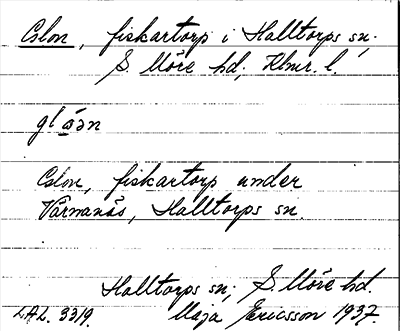 Colon, fiskartorp i Halltorps sn;
S. Möre hd; Klmr. l.
Colon, fiskartorp under
Värnanäs, Halltorps sn.
Halltorps sn; S. Möre hd.
L.A.L. 3319. Maja Ericsson 1937